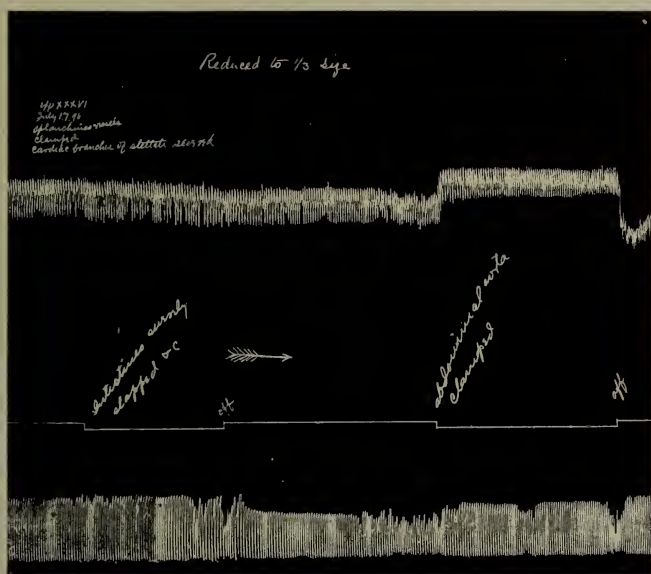 Reduced to 1/3 size
Exp XXXVI
July 17, 96
splanchnic vessels
clamped
cardiac branches of stellate severed
intestines
clapped &c
off
abdominal aorta
clamped
off